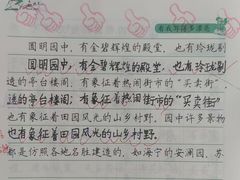 圆明园中，有金碧辉煌的殿堂，也有玲珑剔
圆明园中，有金碧辉煌的殿堂，也有玲珑剔
透的亭台楼阁；有象征着热闹街市的“买卖街”
透的亭台楼阁；有象征着热闹街市的“买卖街”
也有象征着田园风光的山乡村野。园中许多景物
也有象征着田园风光的山乡村野。
都是仿照各地名胜建造的，如海宁的安澜园、苏